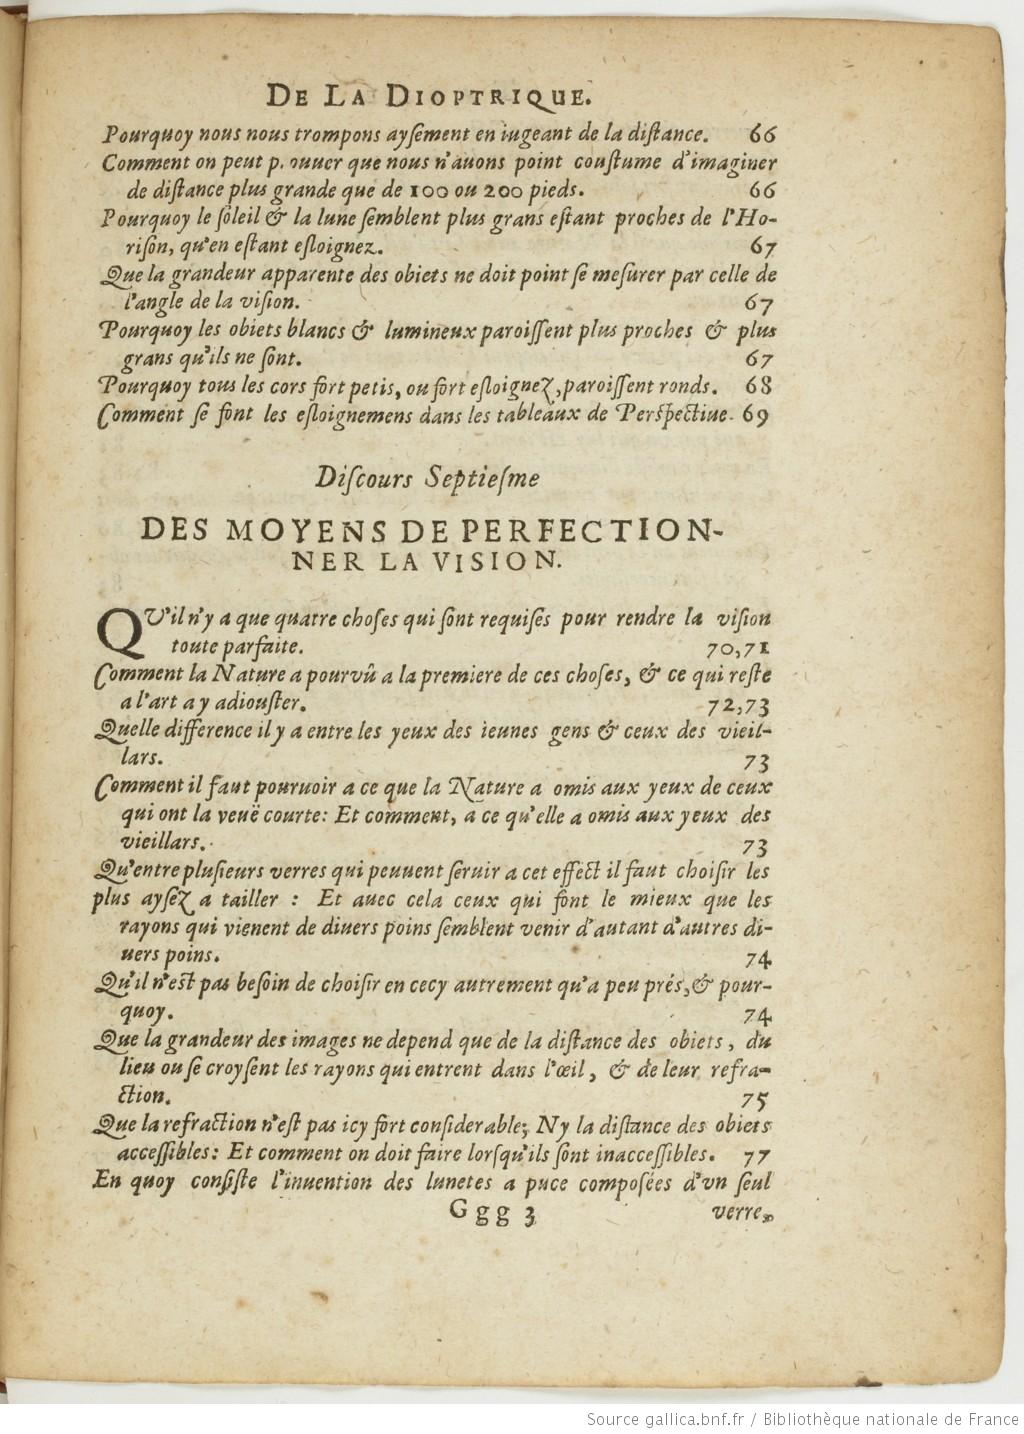 DE LA DIOPTRIQUE.
Pourquoy nous nous trompons ayſement en iugeant de la diſtance. 66
Comment on peut p. ouuer que nous n'auons point couſtume d'imaginer
de diſtance plus grande que de 100 ou 200 pieds. 66
Pourquoy le ſoleil & la lune ſemblent plus grans eſtant proches de l'Ho-
riſon, qu'en eſtant eſloignez. 67
Que la grandeur apparente des obiets ne doit point ſe meſurer par celle de
l'angle de la viſion. 67
Pourquoy les obiets blancs & lumineux paroiſſent plus proches & plus
grans qu'ils ne ſont. 67
Pourquoy tous les cors fort petis, ou fort eſloignez, paroiſſent ronds. 68
Comment ſe font les eſloignemens dans les tableaux de Perſpectiue. 69
Diſcours Septieſme
DES MOYENS DE PERFECTION-
NER LA VISION.
QV'il n'y a que quatre choſes qui ſont requiſes pour rendre la viſion
toute parfaite. 70,71
Comment la Nature a pourvû a la premiere de ces choſes, & ce qui reſte
a l'art a y adiouſter. 72,73
Quelle difference il y a entre les yeux des ieunes gens & ceux des vieil-
lars. 73
Comment il faut pouruoir a ce que la Nature a omis aux yeux de ceux
qui ont la veuë courte: Et comment, a ce qu'elle a omis aux yeux des
vieillars. 73
Qu'entre pluſieurs verres qui peuuent ſeruir a cet effect il faut choiſir les
plus ayſez a tailler : Et auec cela ceux qui font le mieux que les
rayons qui vienent de diuers poins ſemblent venir d'autant d'autres di-
uers poins. 74
Qu'il n'eſt pas beſoin de choiſir en cecy autrement qu'a peu prés, & pour-
quoy. 74
Que la grandeur des images ne depend que de la diſtance des obiets, du
lieu ou ſe croyſent les rayons qui entrent dans l'œil, & de leur refra-
ction. 75
Que la refraction n'eſt pas icy fort conſiderable; Ny la diſtance des obiets
acceſſibles: Et comment on doit faire lorſqu'ils ſont inacceſſibles. 77
En quoy conſiſte l'inuention des lunetes a puce compoſées d'vn ſeul
Ggg 3 verre,
Source gallica.bnf.fr / Bibliothèque nationale de France